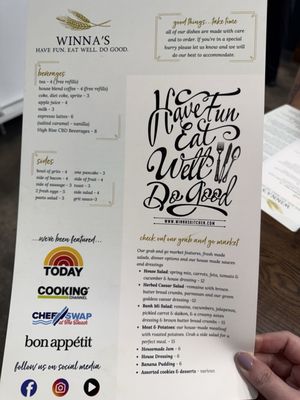 WINNA'S
HAVE FUN. EAT WELL. DO GOOD.
beverages
tea - 4 (free refills)
house blend coffee - 4 (free refills)
coke, diet coke, sprite - 3
apple juice - 4
milk - 3
espresso lattes - 6
(salted caramel - vanilla)
High Rise CBD Beverages - 8
sides
bowl of grits - 4
one pancake - 3
side of bacon - 4
side of fruit - 4
side of sausage - 5
toast - 3
2 fresh eggs - 5
side salad - 4
pasta salad - 5
grit sauce -3
we've been featured...
TODAY
COOKING
CHANNEL
CHEF SWAP
at The Beach
bon appétit
follow us on social media
good things... take time
all of our dishes are made with care
and to order. If you're in a special
hurry please let us know and we will
do our best to accommodate.
Have Fun
Eat
Well
Do Good
WWW.WINNASKITCHEN.COM
check out our grab and go market
Our grab and go market features, fresh made
salads, dinner options and our house made sauces
and dressings
• House Salad: spring mix, carrots, feta, tomato &
cucumber & house dressing - 12
• Herbed Caesar Salad- romaine with a brown
butter bread crumbs, parmesan and our green
goddess caesar dressing -12
• Banh Mi Salad: romaine, cucumbers, jalapenos,
pickled carrot & daikon, & a creamy asian
dressing & brown butter bread crumbs - 13
• Meat & Potatoes: our house-made meatloaf
with roasted potatoes. Grab a side salad for a
perfect meal. - 15
• Housemade Jam - 9
• House Dressing - 6
• Banana Pudding - 6
• Assorted cookies & desserts - various
WINNA'S